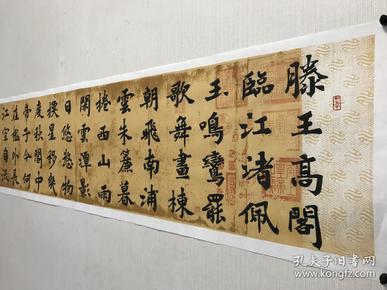 滕王高閣
臨江渚佩
玉鳴鸞罷
歌舞畫棟
朝飛南浦
雲朱簾暮
捲西山雨
閑雲潭影
日悠悠物
換星移幾
度秋閣中
帝子今何
在檻外長
江空自流
孔夫子旧书网